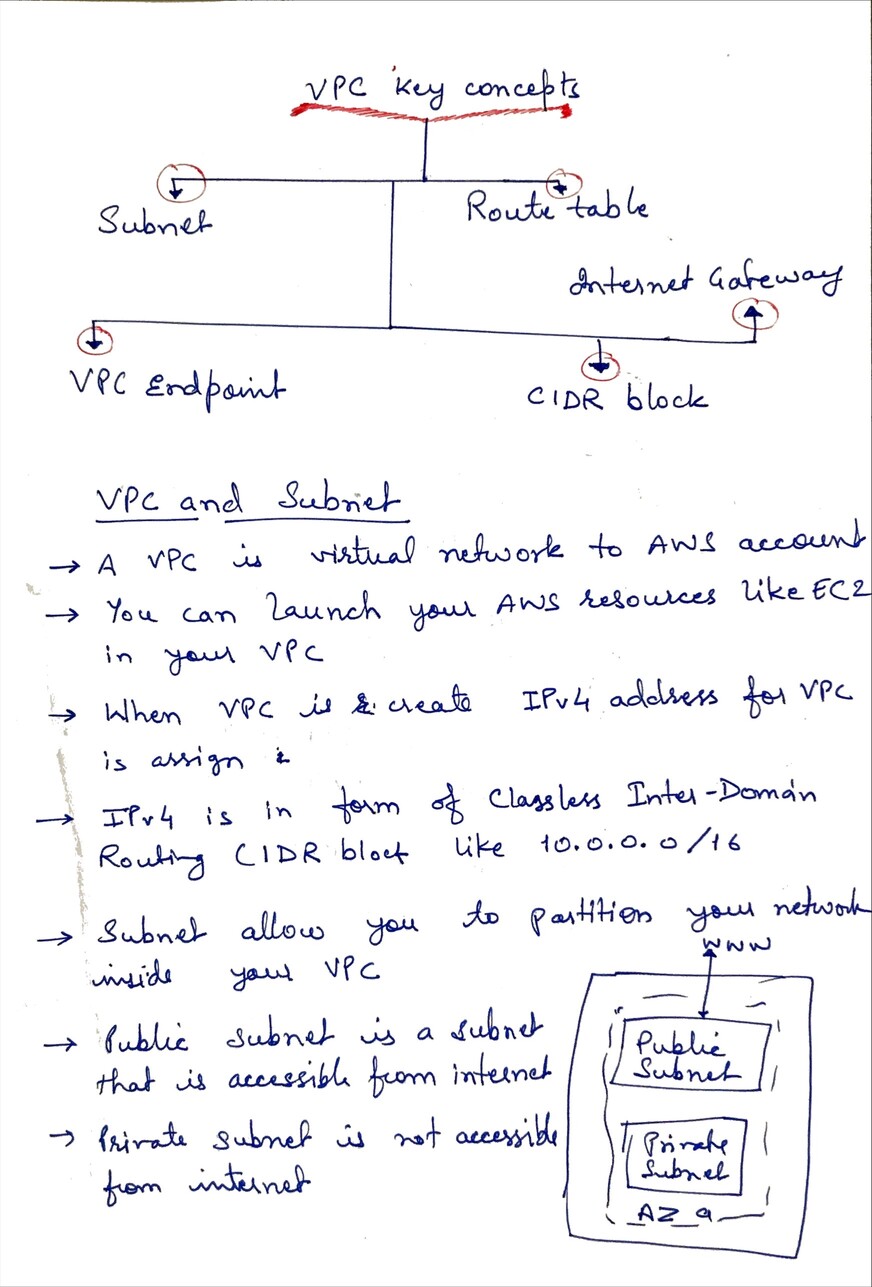 VPC key concepts
Subnet
Route table
Internet Gateway
VPC Endpoint
CIDR block
VPC and Subnet
→ A VPC is virtual network to AWS account
→ You can launch your AWS resources like EC2
in your VPC
→ When VPC is create IPv4 address for VPC
is assign
→ IPv4 is in form of Classless Inter-Domain
Routing CIDR bloct like 10.0.0.0/16
→ Subnet allow you to partition your network
inside your VPC
WWW
→ Public subnet is a subnet
that is accessible from internet
→ Private subnet is not accessible
from internet
Public
Subnet
Private
Subnet
AZ a